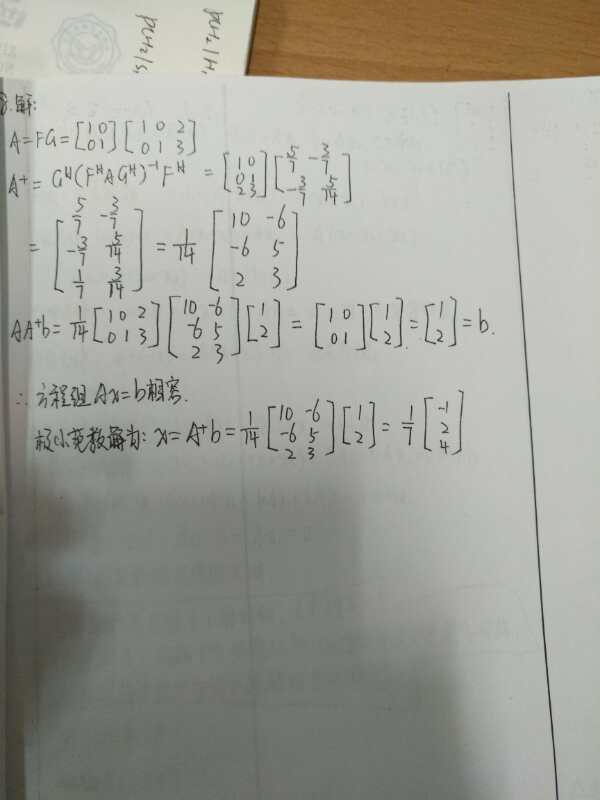 8.解:
A=FG=[1 0; 0 1][1 0 2; 0 1 3]
A⁺= Gᴴ(FᴴAGᴴ)⁻¹Fᴴ = [1 0; 0 1; 2 3][5/7 -3/7; -3/7 5/14]
= [5/7 -3/7; -3/7 5/14; 1/7 3/14] = 1/14 [10 -6; -6 5; 2 3]
AA⁺b= 1/14 [1 0 2; 0 1 3][10 -6; -6 5; 2 3][1; 2] = [1 0; 0 1][1; 2]=[1; 2]=b.
∴方程组Ax=b相容.
极小范数解为: x=A⁺b= 1/14 [10 -6; -6 5; 2 3][1; 2] = 1/7 [-1; 2; 4]